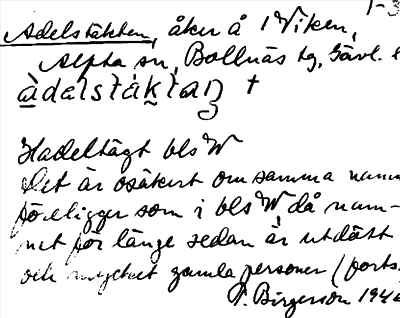 1-3
Adelstäkten, åker å 1 Viken,
Alfta sn, Bollnäs tg, Gävl. l
àdalstáktaŋ +
Hadeltägt bls W
Det är osäkert om samma namn
föreligger som i bls W, då nam-
net för länge sedan är utdött
och mycket gamla personer (forts.
T. Birgerson 1946